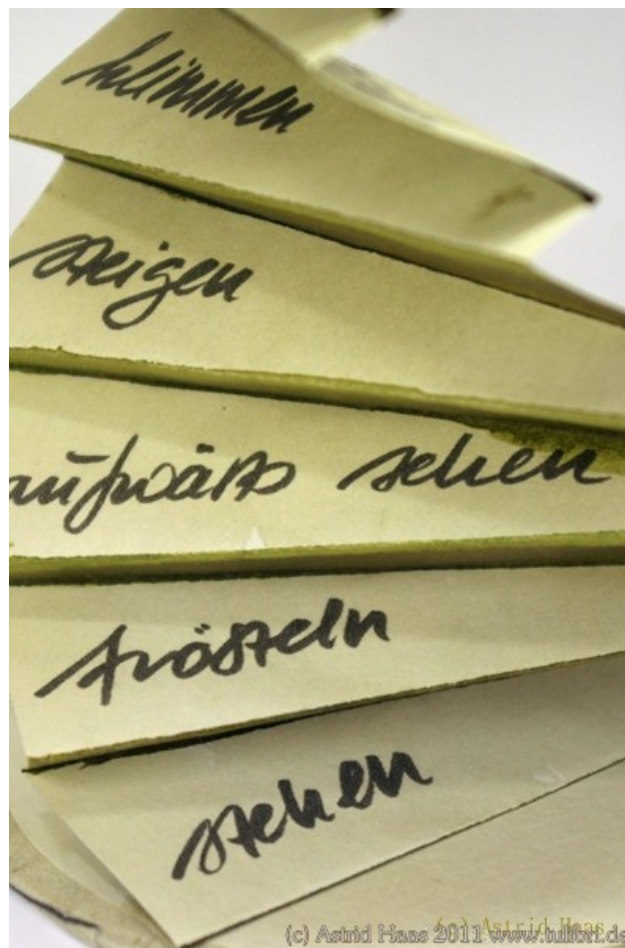 klimmen
steigen
aufwärts sehen
frösteln
stehen
(c) Astrid Haas
(c) Astrid Haas 2011 www.tullori.de